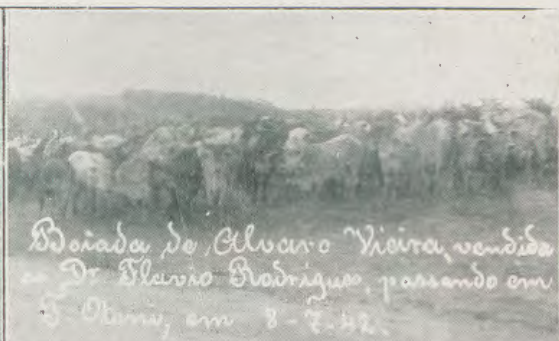 Boiada de Alvaro Vieira, vendida
ao Dr Flavio Rodrigues, passando em
T. Otoni, em 8-7-42.